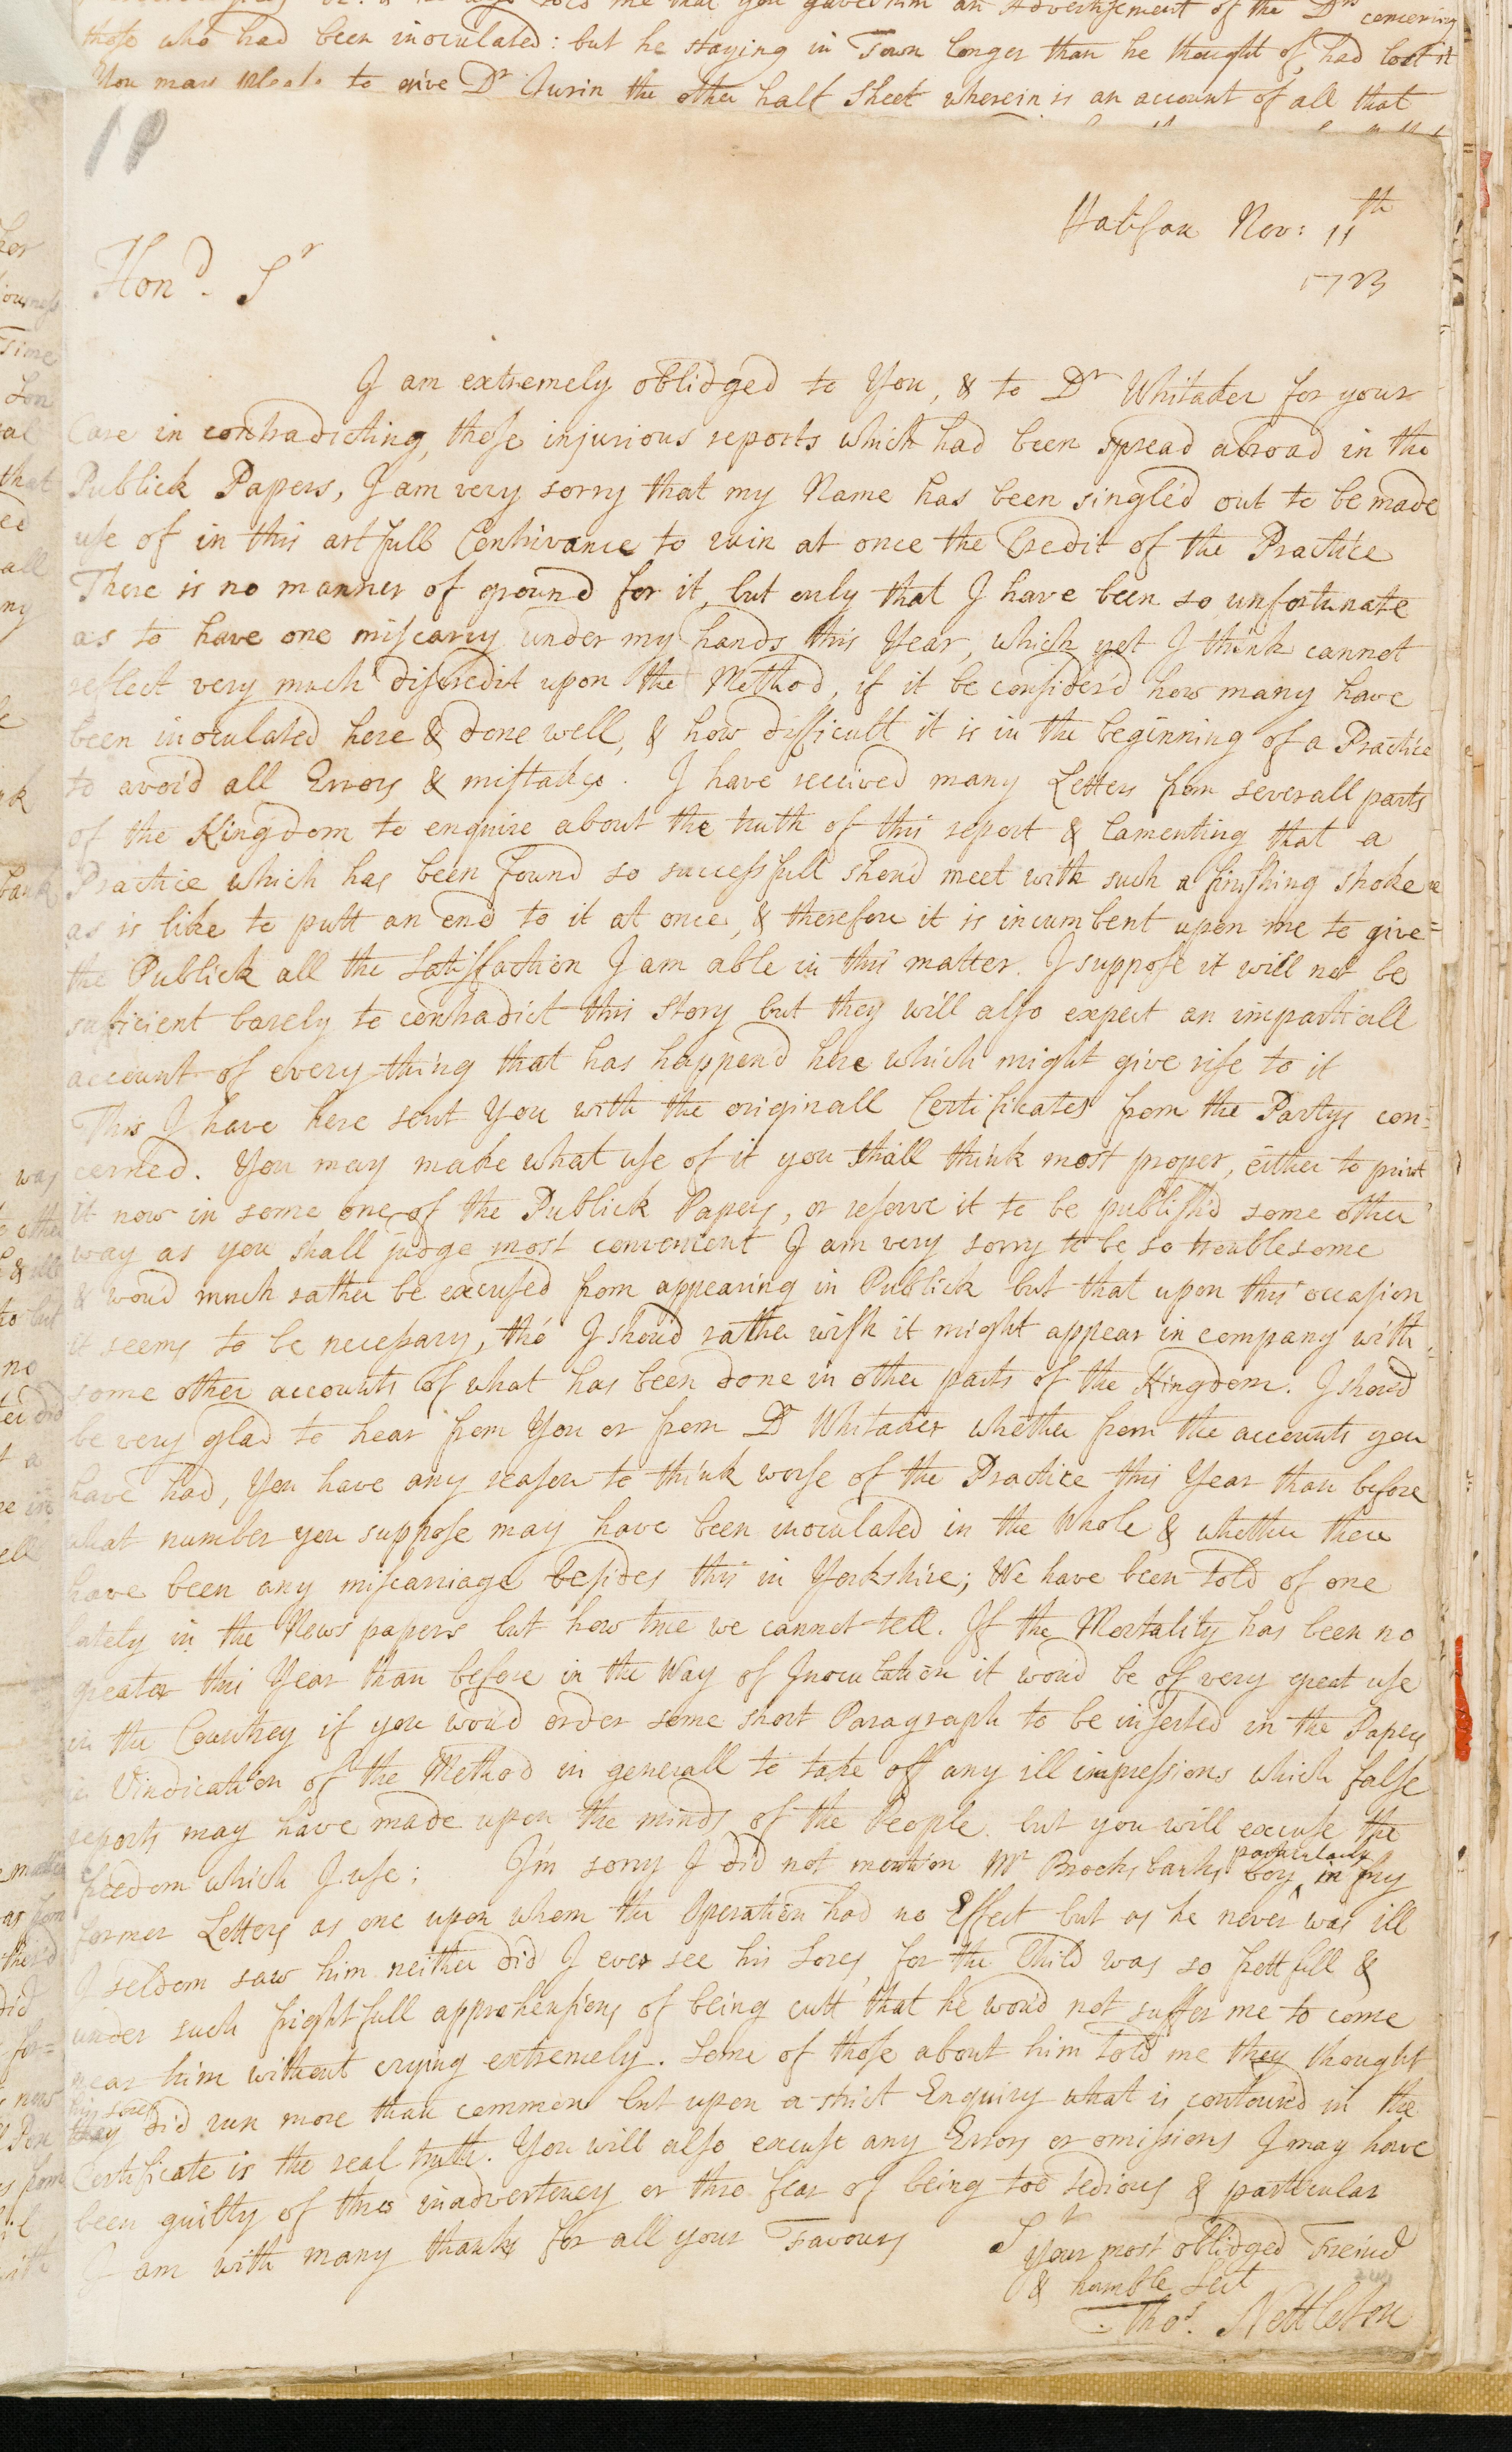 those who had been inoculated: but he staying in Town longer than he thought of, had lost it
You may please to give Dr Jurin the other half sheet wherein is an account of all that
Halifax Nov: 11th
1723
Hond. Sr
I am extremely oblidged to You, & to Dr Whitaker for your
Care in contradicting, those injurious reports which had been spread abroad in the
Publick Papers, I am very sorry that my Name has been singled out to be made
use of in this artfull Contrivance to ruin at once the Credit of the Practice
There is no manner of ground for it, but only that I have been so unfortunate
as to have one miscarry under my hands this Year, which yet I think cannot
reflect very much discredit upon the Method, if it be consider'd how many have
been inoculated here & done well, & how difficult it is in the beginning of a Practice
to avoid all Errors & mistakes. I have received many Letters from severall parts
of the Kingdom to enquire about the truth of this report & lamenting that a
Practice which has been found so successfull shou'd meet with such a finishing stroke
as is like to putt an end to it at once, & therefore it is incumbent upon me to give
the Publick all the Satisfaction I am able in this matter. I suppose it will not be
sufficient barely to contradict this story but they will also expect an impartiall
account of every thing that has happen'd here which might give rise to it
This I have here sent You with the originall Certificates from the Partys con=
cerned. You may make what use of it you shall think most proper, either to print
it now in some one of the Publick Papers, or reserve it to be publish'd some other
way as you shall judge most convenient I am very sorry to be so troublesome
& wou'd much rather be excused from appearing in Publick but that upon this occasion
it seems to be necessary, tho' I shou'd rather wish it might appear in company with
some other accounts of what has been done in other parts of the Kingdom. I shou'd
be very glad to hear from You or from Dr Whitaker whether from the accounts you
have had, You have any reason to think worse of the Practice this Year than before
what number you suppose may have been inoculated in the Whole & whether there
have been any miscarriage besides this in Yorkshire; We have been told of one
lately in the News papers but how true we cannot tell. If the Mortality has been no
greater this Year than before in the Way of Inoculation it wou'd be of very great use
in the Countrey if you wou'd order some short Paragraph to be inserted in the Papers
in Vindication of the Method in generall to take off any ill impressions which false
reports may have made upon the minds of the People. but you will excuse the
freedom which I use; I'm sorry I did not mention Mr Brocksbanks boy particularly in my
former Letters as one upon whom the Operation had no Effect but as he never was ill
I seldom saw him neither did I ever see his Sores, for the Child was so frettfull &
under such frightfull apprehensions of being cutt that he wou'd not suffer me to come
near him without crying extremely. Some of those about him told me they thought
his sores did run more than common but upon a strict Enquiry what is contain'd in the
Certificate is the real truth. You will also excuse any Errors or omissions I may have
been guilty of thro inadvertency or thro fear of being too tedious & particular
I am with many thanks for all your Favours Sr
Your most oblidged Freind
& humble Servt
Thos. Nettleton